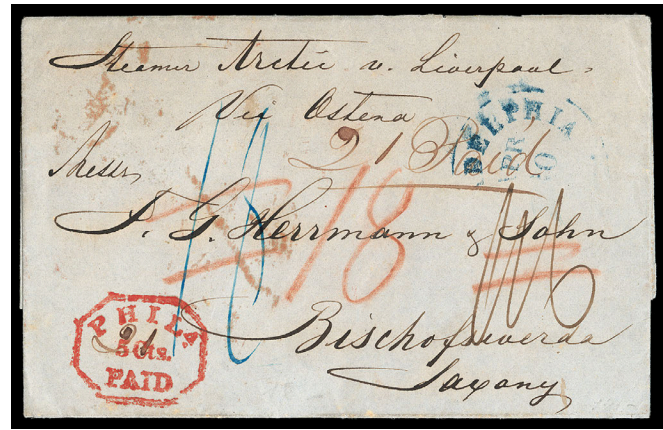 Steamer Arctic v. Liverpool.
Via Ostend
21 Paid
DELPHIA
Messrs
F. G. Herrmann & Sohn
18
Bischofswerda
Saxony
PHILA
21
5 Cts.
PAID